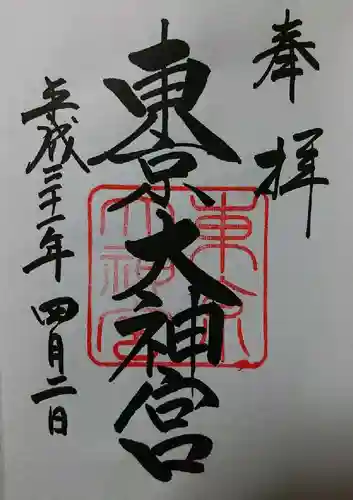 奉拝
東京大神宮
平成三十一年四月二日
東京大神宮